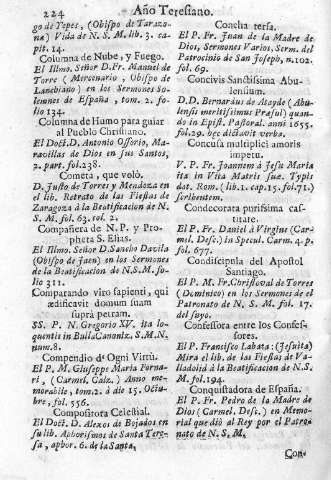 224 Año Teresiano.
go de Yepes, (Obispo de Tarazo-
na) Vida de N. S. M. lib. 3. ca-
pit. 14.
Columna de Nube, y Fuego.
El Illmo. Señor D. Fr. Manuel de
Torre (Mercenario, Obispo de
Lanchiano) en los Sermones So-
lemnes de España, tom. 2. fo-
lio 134.
Columna de Humo para guiar
al Pueblo Christiano.
El Doct. D. Antonio Ossorio, Ma-
ravillas de Dios en sus Santos,
2. part. fol. 238.
Cometa, que voló.
D. Justo de Torres y Mendoza en
el lib. Retrato de las Fiestas de
Zaragoza à la Beatificacion de N.
S. M. fol. 63. col. 2.
Compañera de N. P. y Pro-
pheta S. Elias.
El Illmo. Señor D. Sancho Davila
(Obispo de Jaen) en los Sermones
de la Beatificacion de N. S. M. fo-
lio 311.
Comparando viro sapienti, qui
ædificavit domum suam
suprà petram.
SS. P. N. Gregorio XV. ita lo-
quentis in Bulla Canoniz. S. M. N.
num. 8.
Compendio de Ogni Virtù.
El P. M. Giuseppe Maria Forna-
ri, (Carmel. Calz.) Anno me-
morabile, tom. 2. à die 15. Octu-
bre, fol. 556.
Compositora Celestial.
El Doct. D. Alexos de Bojados en
su lib. Aphorismos de Santa Tere-
sa, aphor. 6. de la Santa.
Conclia tersa.
El P. Fr. Juan de la Madre de
Dios, Sermones Varios, Serm. del
Patrocinio de San Joseph, n. 102.
fol. 69.
Concivis Sanctissima Abu-
lensium.
D. D. Bernardus de Atayde (Abu-
lensis meritissimus Præsul) quon-
do in Epist. Pastoral. anni 1655.
fol. 29. hæc dictavit verba.
Concusa multiplici amoris
impetu.
V. P. Fr. Joannem à Jesu Maria
ita in Vita Matris suæ. Typis
dat. Rom. (lib. 1. cap. 15. fol. 71.)
scribentem.
Condecorata purissima cas-
titate.
El P. Fr. Daniel à Virgine (Car-
mel. Desc.) in Specul. Carm. 4. p.
fol. 677.
Condiscipula del Apostol
Santiago.
El P. M. Fr. Christoval de Torres
(Dominico) en los Sermones de el
Patronato de N. S. M. fol. 17.
del suyo.
Confessora entre los Confes-
sores.
El P. Francisco Labata: (Jesuita)
Mira el lib. de las Fiestas de Va-
lladolid à la Beatificacion de N. S.
M. fol. 194.
Conquistadora de España.
El P. Fr. Pedro de la Madre de
Dios (Carmel. Desc.) en Memo-
rial que diò al Rey por el Patro-
nato de N. S. M.
Con-